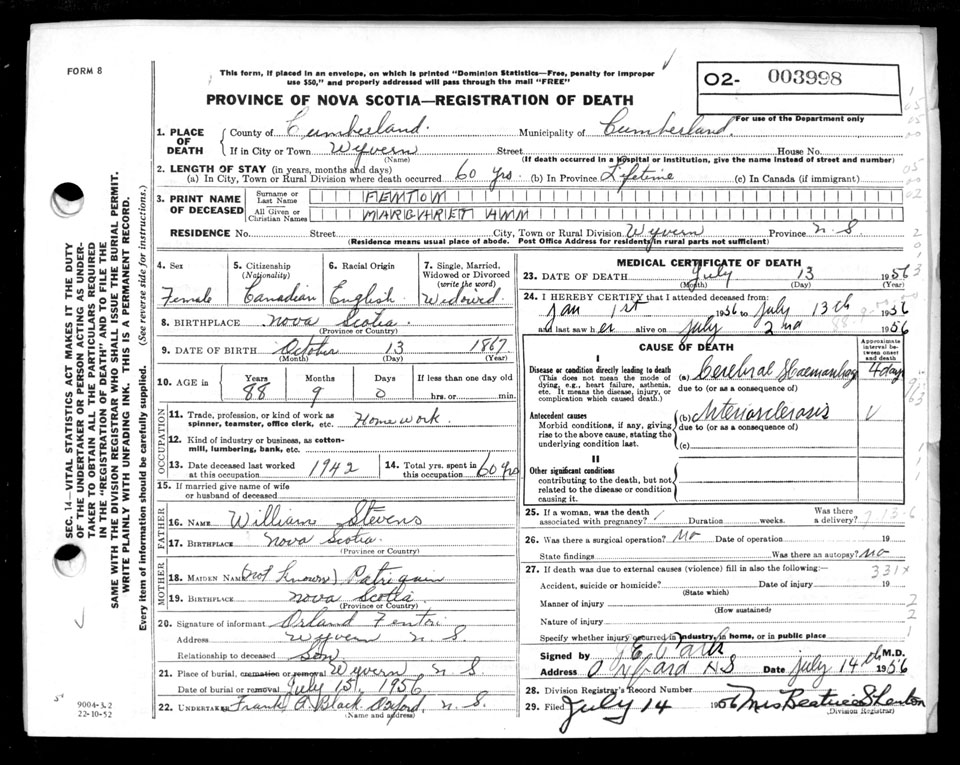 FORM 8
This form, if placed in an envelope, on which is printed "Dominion Statistics—Free, penalty for improper
use $50," and properly addressed will pass through the mail "FREE"
PROVINCE OF NOVA SCOTIA—REGISTRATION OF DEATH
O2- 003998
For use of the Department only
1. PLACE OF DEATH
County of Cumberland. Municipality of Cumberland.
If in City or Town Wyvern Street House No.
(Name) (If death occurred in a hospital or institution, give the name instead of street and number)
2. LENGTH OF STAY (in years, months and days)
(a) In City, Town or Rural Division where death occurred 60 yrs. (b) In Province Lifetime (c) In Canada (if immigrant)
3. PRINT NAME OF DECEASED
Surname or Last Name FENTON
All Given or Christian Names MARGHARIET ANN
RESIDENCE No. Street City, Town or Rural Division Wyvern Province N.S
(Residence means usual place of abode. Post Office Address for residents in rural parts not sufficient)
4. Sex
Female
5. Citizenship (Nationality)
Canadian
6. Racial Origin
English
7. Single, Married, Widowed or Divorced (write the word)
Widowed
8. BIRTHPLACE Nova Scotia
(Province or Country)
9. DATE OF BIRTH October 13 1867
(Month) (Day) (Year)
10. AGE in Years Months Days If less than one day old
88 9 0 hrs. or min.
OCCUPATION
11. Trade, profession, or kind of work as spinner, teamster, office clerk, etc. Homework.
12. Kind of industry or business, as cotton-mill, lumbering, bank, etc.
13. Date deceased last worked at this occupation 1942
14. Total yrs. spent in this occupation 60 yrs
15. If married give name of wife or husband of deceased
FATHER
16. NAME William Stevens
17. BIRTHPLACE Nova Scotia.
(Province or Country)
MOTHER
18. MAIDEN NAME (not known) Patriquin
19. BIRTHPLACE Nova Scotia
(Province or Country)
20. Signature of informant Orland Fenton
Address Wyvern N.S.
Relationship to deceased son
21. Place of burial, cremation or removal Wyvern N S
Date of burial or removal July 15, 1956
22. UNDERTAKER Frank A. Black Oxford, N.S.
(Name and address)
MEDICAL CERTIFICATE OF DEATH
23. DATE OF DEATH July 13 1956
(Month) (Day)
24. I HEREBY CERTIFY that I attended deceased from:
Jan 1st 1956 to July 13th 1956
and last saw her alive on July 2nd 1956
CAUSE OF DEATH
Approximate interval between onset and death
I
Disease or condition directly leading to death
(This does not mean the mode of dying, e.g., heart failure, asthenia, etc. It means the disease, injury, or complication which caused death.)
(a) Cerebral Haemorrhage 4 days
due to (or as a consequence of)
Antecedent causes
Morbid conditions, if any, giving rise to the above cause, stating the underlying condition last.
(b) Arteriosclerosis
due to (or as a consequence of)
(c)
II
Other significant conditions
contributing to the death, but not related to the disease or condition causing it.
25. If a woman, was the death associated with pregnancy? Duration weeks. Was there a delivery?
26. Was there a surgical operation? No Date of operation 19
State findings Was there an autopsy? No
27. If death was due to external causes (violence) fill in also the following:—
331x
Accident, suicide or homicide? Date of injury 19
(State which)
Manner of injury
(How sustained)
Nature of injury
Specify whether injury occurred in industry, in home, or in public place
Signed by M.D.
Address Oxford NS Date July 14th 1956
28. Division Registrar's Record Number
29. Filed July 14 1956 Mrs Beatrice S Fenton
(Division Registrar)
SEC. 14—VITAL STATISTICS ACT MAKES IT THE DUTY
OF THE UNDERTAKER OR PERSON ACTING AS UNDER-
TAKER TO OBTAIN ALL THE PARTICULARS REQUIRED
IN THE "REGISTRATION OF DEATH" AND TO FILE THE
SAME WITH THE DIVISION REGISTRAR WHO SHALL ISSUE THE BURIAL PERMIT.
WRITE PLAINLY WITH UNFADING INK. THIS IS A PERMANENT RECORD.
Every item of information should be carefully supplied. (See reverse side for instructions.)
9004-3.2
22-10-52